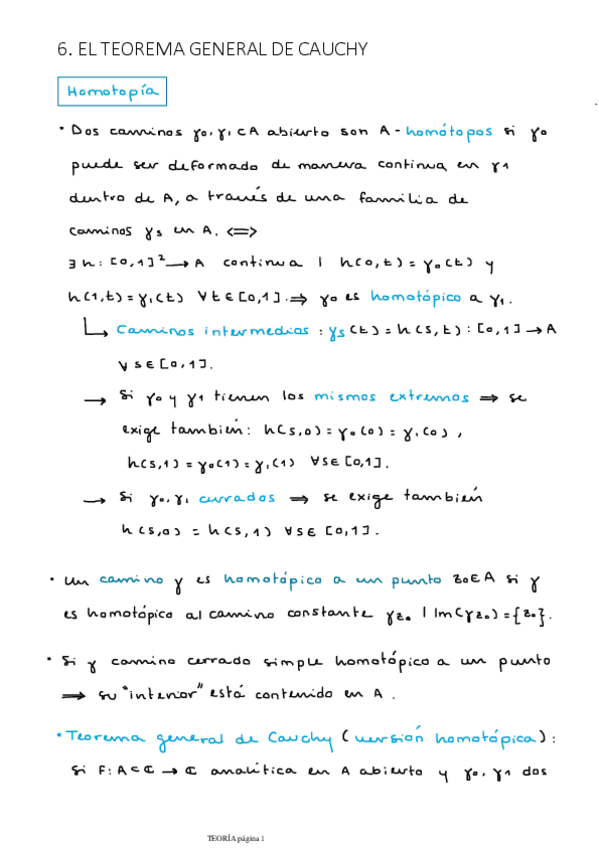 6. EL TEOREMA GENERAL DE CAUCHY
Homotopía
• Dos caminos γ₀, γ₁ ⊂ A abierto son A-homótopos si γ₀
puede ser deformado de manera continua en γ₁
dentro de A, a través de una familia de
caminos γₛ en A. <=>
∃ h: [0,1]² → A continua | h(0,t) = γ₀(t) y
h(1,t) = γ₁(t) ∀t∈[0,1]. ⇒ γ₀ es homotópico a γ₁.
↳ Caminos intermedios: γₛ(t) = h(s,t): [0,1] → A
∀s∈[0,1].
→ Si γ₀ y γ₁ tienen los mismos extremos ⇒ se
exige también: h(s,0) = γ₀(0) = γ₁(0),
h(s,1) = γ₀(1) = γ₁(1) ∀s∈[0,1].
→ Si γ₀, γ₁ cerrados ⇒ se exige también
h(s,0) = h(s,1) ∀s∈[0,1].
• Un camino γ es homotópico a un punto z₀∈A si γ
es homotópico al camino constante γz₀ | Im(γz₀) = {z₀}.
• Si γ camino cerrado simple homotópico a un punto
⇒ su "interior" está contenido en A.
• Teorema general de Cauchy (versión homotópica):
Si F: A⊂ℂ → ℂ analítica en A abierto y γ₀, γ₁ dos
TEORÍA página 1